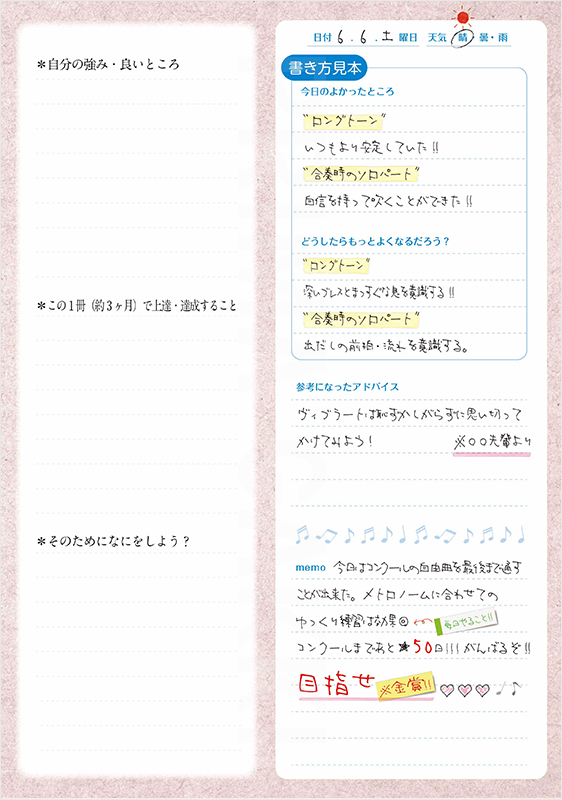 ＊自分の強み・良いところ
＊この１冊（約３ヶ月）で上達・達成すること
＊そのためになにをしよう？
日付 6.6.土曜日 天気 晴・曇・雨
書き方見本
今日のよかったところ
"ロングトーン"
いつもより安定していた!!
"合奏時のソロパート"
自信を持って吹くことができた!!
どうしたらもっとよくなるだろう？
"ロングトーン"
深いブレスとまっすぐな息を意識する!!
"合奏時のソロパート"
出だしの前拍・流れを意識する。
参考になったアドバイス
ヴィブラートは恥ずかしがらずに思い切って
かけてみよう！ ※○○先輩より
memo 今日はコンクールの自由曲を最後まで通す
ことが出来た。メトロノームに合わせての
ゆっくり練習は効果◎ 毎日やること!!
コンクールまであと50日!!!がんばるぞ!!
目指せ ※金賞!!